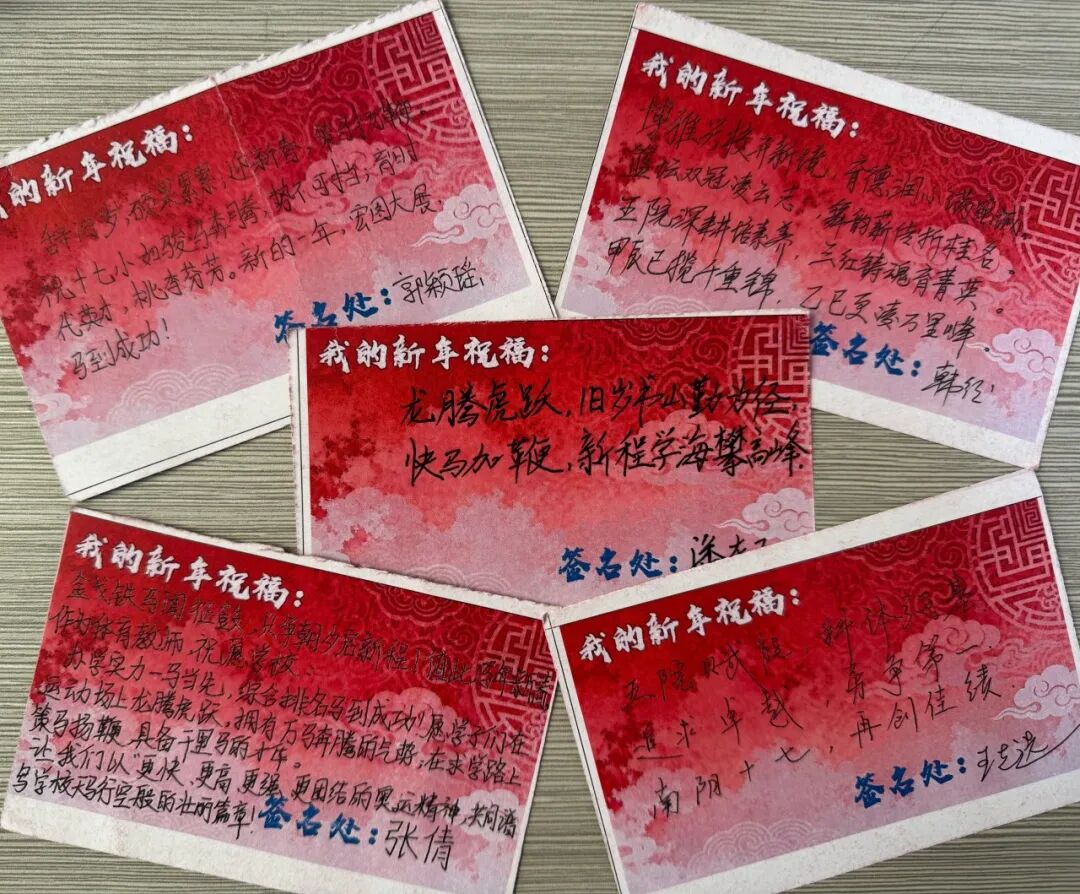 我的新年祝福：
辞旧岁，硕果累累，迎新春，
祝十七小如骏马奔腾，势不可挡；育时
代英才，桃李芬芳。新的一年，宏图大展，
马到成功！
签名处：郭颖瑶
我的新年祝福：
博雅
篮坛双冠凌云志，舞韵薪传折桂名。
五院深耕培素养，三红铸魂育菁英。
甲辰已揽千重锦，乙巳更凌万里峰。
签名处：韩
我的新年祝福：
龙腾虎跃，旧岁书山勤为径，
快马加鞭，新程学海攀高峰.
签名处：
我的新年祝福：
金戈铁马闻征鼓，只争朝夕启新程！值此马年新春
作为体育教师，祝愿学校：
办学实力一马当先，综合排名马到成功！愿学子们在
运动场上龙腾虎跃，拥有万马奔腾的气势，在求学路上
策马扬鞭，具备千里马的才华。
让我们以“更快、更高、更强、更团结的奥运精神，共同谱
写学校天马行空般的壮丽篇章！
签名处：张倩
我的新年祝福：
五院
追求卓越，勇争第一.
南阴十七，再创佳绩
签名处：王志选